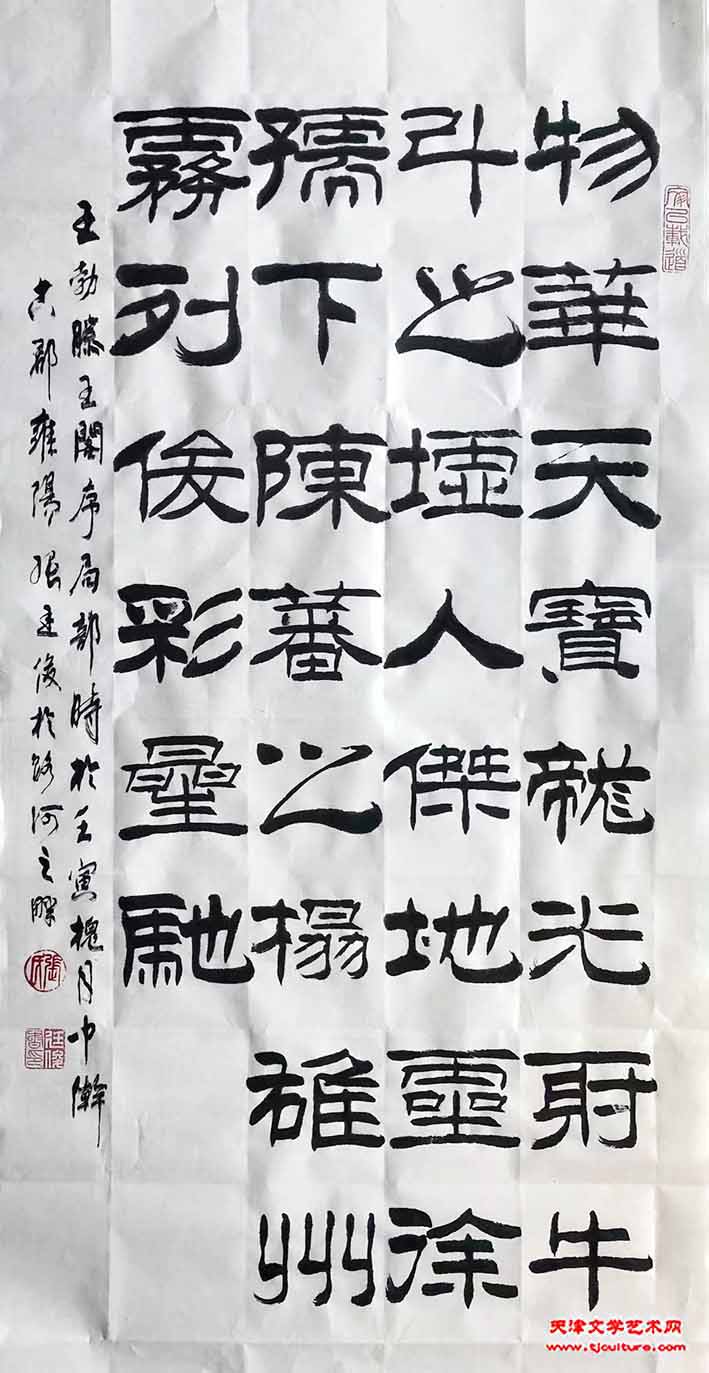 物華天寶龍光射牛
斗之墟人傑地靈徐
孺下陳蕃之榻雄州
霧列俊彩星馳
王勃滕王閣序局部時於壬寅槐月中澣
古郡雍陽張連俊於潞河之
天津文学艺术网
www.tjculture.com